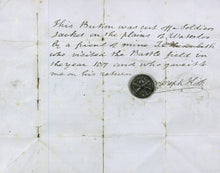 This Button was cut off a Soldiers
Jacket on the plains of Waterloo
by a friend of mine
who visited the Battle field in
the year 1817 and who gave it to
me on his return
Joseph